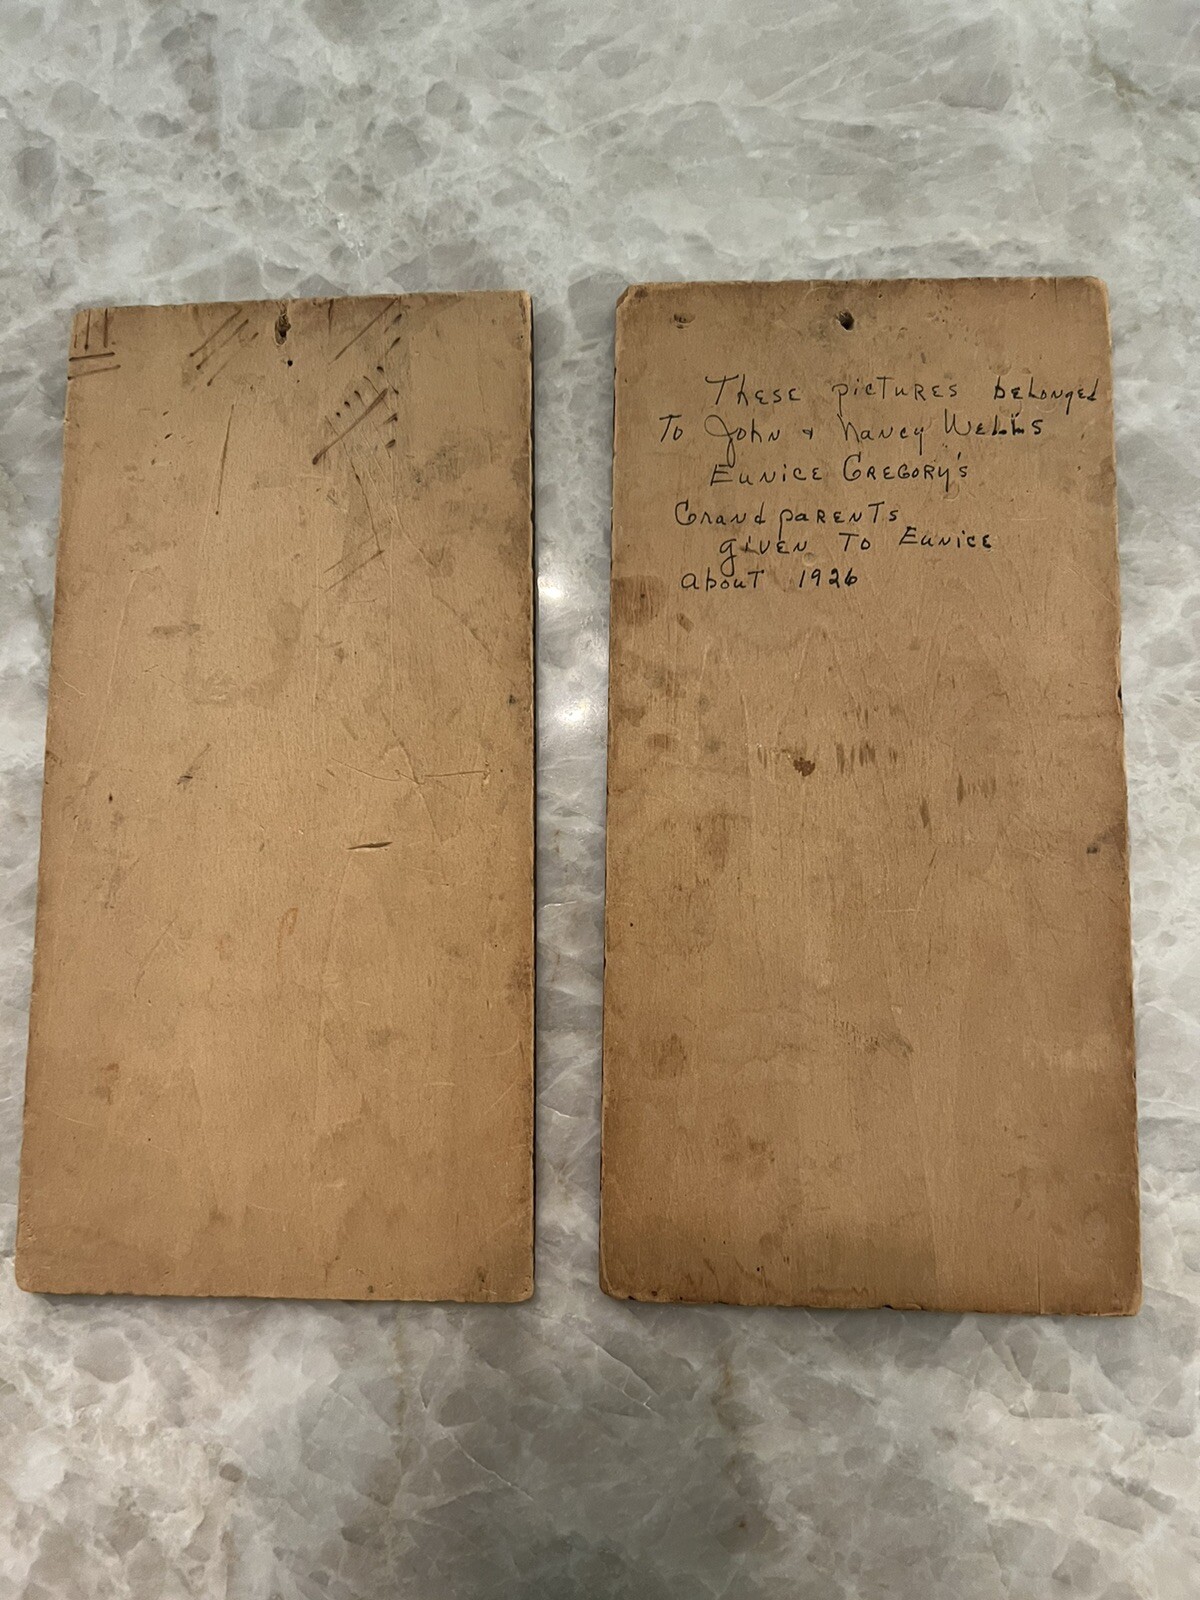 These pictures belonged
To John & Nancy Wells
Eunice Gregory's
Grandparents
given To Eunice
about 1926